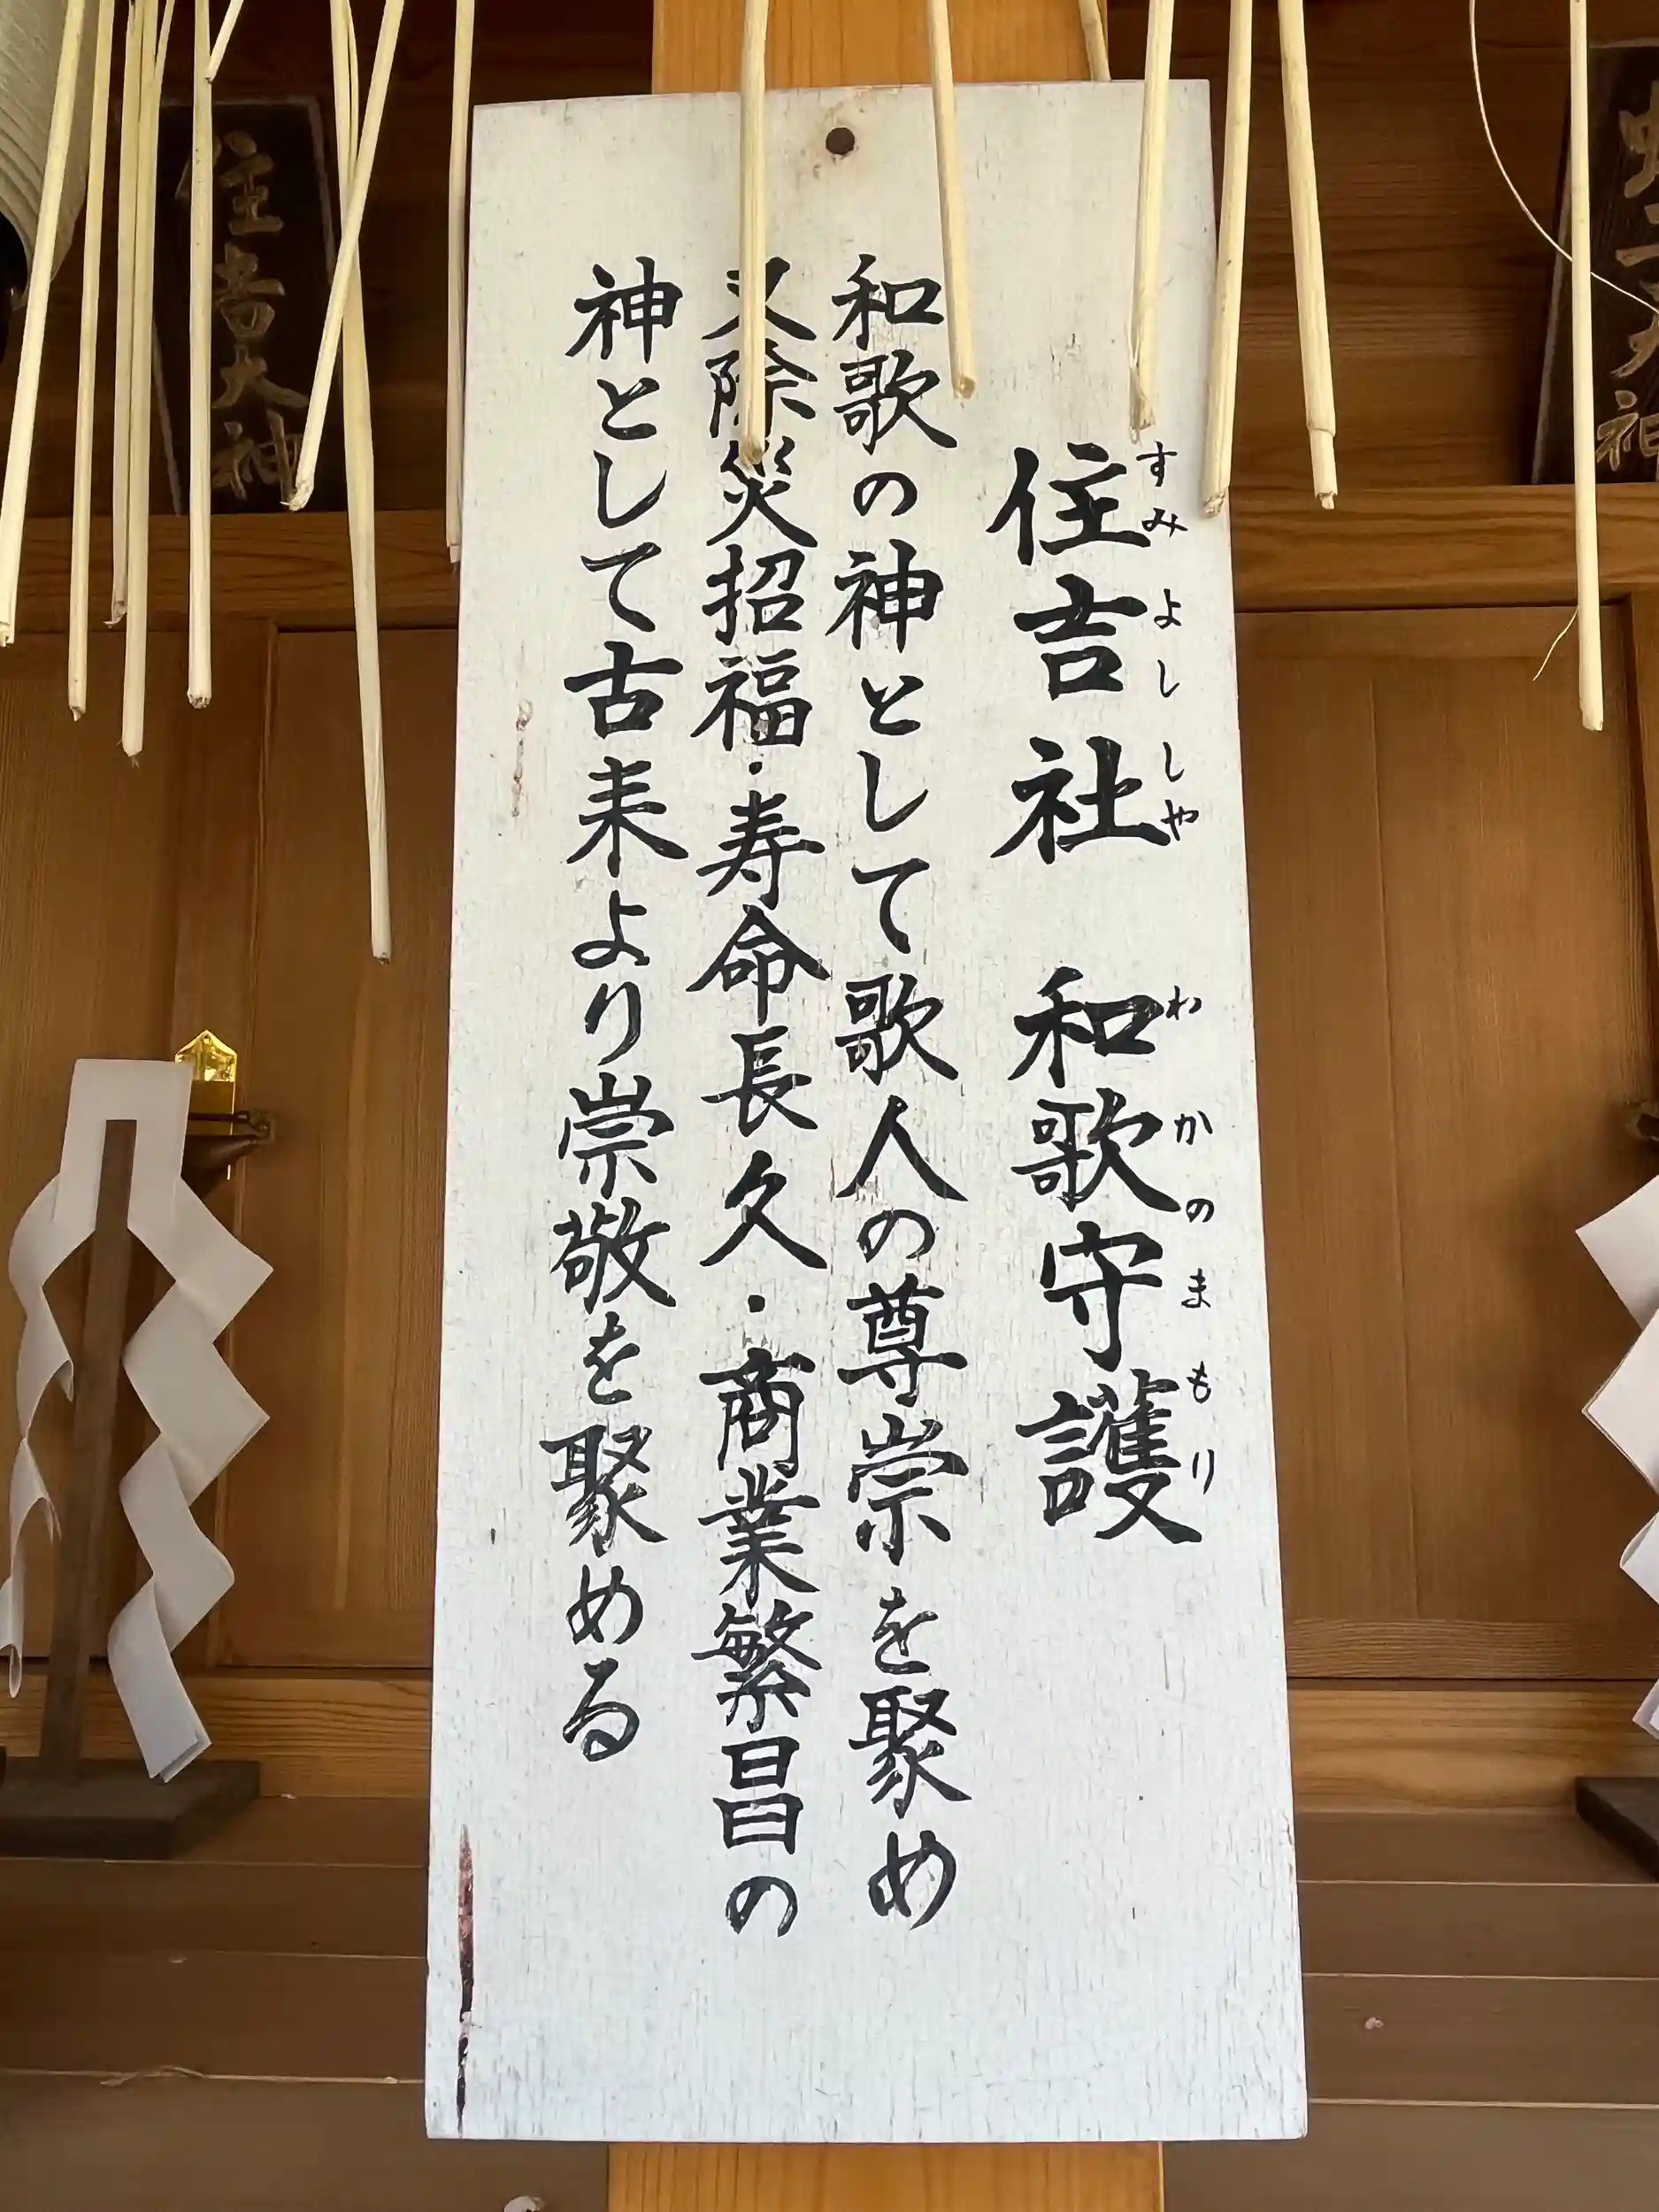 住吉社 和歌守護
すみ よし しや わ かの まもり
和歌の神として歌人の尊崇を聚め
又除災招福・寿命長久・商業繁昌の
神として古来より崇敬を聚める
住吉大神